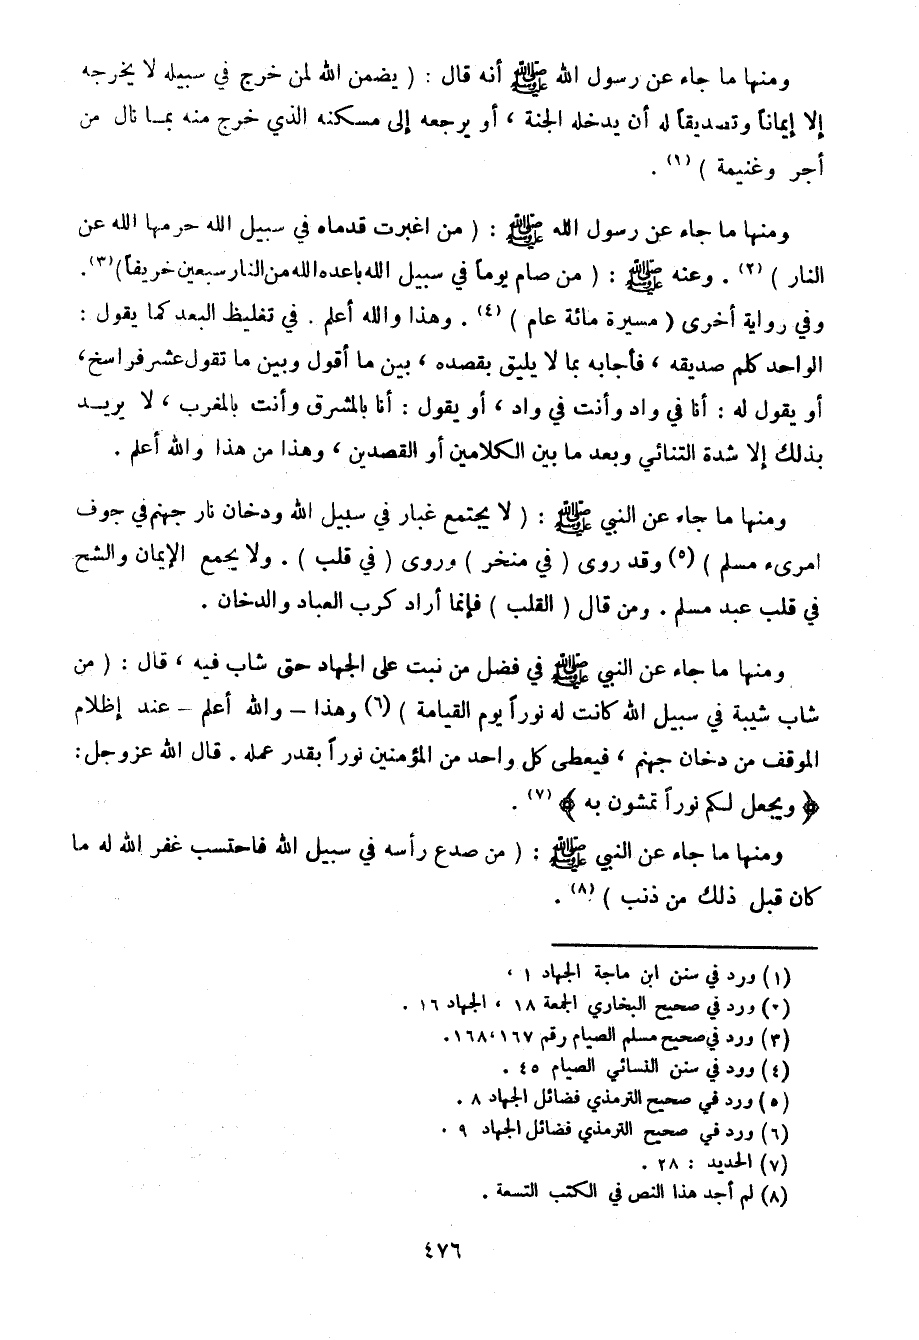 ومنها ما جاء عن رسول الله ﷺ أنه قال : ( يضمن الله لمن خرج في سبيله لا يخرجه
إلا إيماناً وتصديقاً له أن يدخله الجنة ، أو يرجعه إلى مسكنه الذي خرج منه بمـا نال من
أجر وغنيمة ) (١) .
ومنها ما جاء عن رسول الله ﷺ : ( من اغبرت قدماه في سبيل الله حرمها الله عن
النار ) (٢) . وعنه ﷺ : ( من صام يوماً في سبيل الله باعده الله من النار سبعين خريفاً)(٣).
وفي رواية أخرى ( مسيرة مائة عام ) (٤) . وهذا والله أعلم . في تغليظ البعد كما يقول :
الواحد كلم صديقه ، فأجابه بما لا يليق بقصده ، بين ما أقول وبين ما تقول عشر فراسخ ،
أو يقول له : أنا في واد وأنت في واد ، أو يقول : أنا بالمشرق وأنت بالمغرب ، لا يريـد
بذلك إلا شدة التنائي وبعد ما بين الكلامين أو القصدين ، وهذا من هذا والله أعلم .
ومنها ما جاء عن النبي ﷺ : ( لا يجتمع غبار في سبيل الله ودخان نار جهنم في جوف
امرىء مسلم ) (٥) وقد روى ( في منخر ) وروى ( في قلب ) . ولا يجمع الإيمان والشح
في قلب عبد مسلم . ومن قال ( القلب ) فإنما أراد كرب العباد والدخان .
ومنها ما جاء عن النبي ﷺ في فضل من نبت على الجهاد حتى شاب فيه ، قال : ( من
شاب شيبة في سبيل الله كانت له نوراً يوم القيامة ) (٦) وهذا – والله أعلم – عند إظلام
الموقف من دخان جهنم ، فيعطى كل واحد من المؤمنين نوراً بقدر عمله . قال الله عز وجل :
﴿ ويجعل لكم نوراً تمشون به ﴾ (٧) .
ومنها ما جاء عن النبي ﷺ : ( من صدع رأسه في سبيل الله فاحتسب غفر الله له ما
كان قبل ذلك من ذنب ) (٨) .
(١) ورد في سنن ابن ماجة الجهاد ١ ،
(٢) ورد في صحيح البخاري الجمعة ١٨ ، الجهاد ١٦ .
(٣) ورد في صحيح مسلم الصيام رقم ١٦٧ ،١٦٨.
(٤) وود في سنن النسائي الصيام ٤٥ .
(٥) ورد في صحيح الترمذي فضائل الجهاد ٨ .
(٦) ورد في صحيح الترمذي فضائل الجهاد ٩ .
(٧) الحديد : ٢٨ .
(٨) لم أجد هذا النص في الكتب التسعة .
٤٧٦